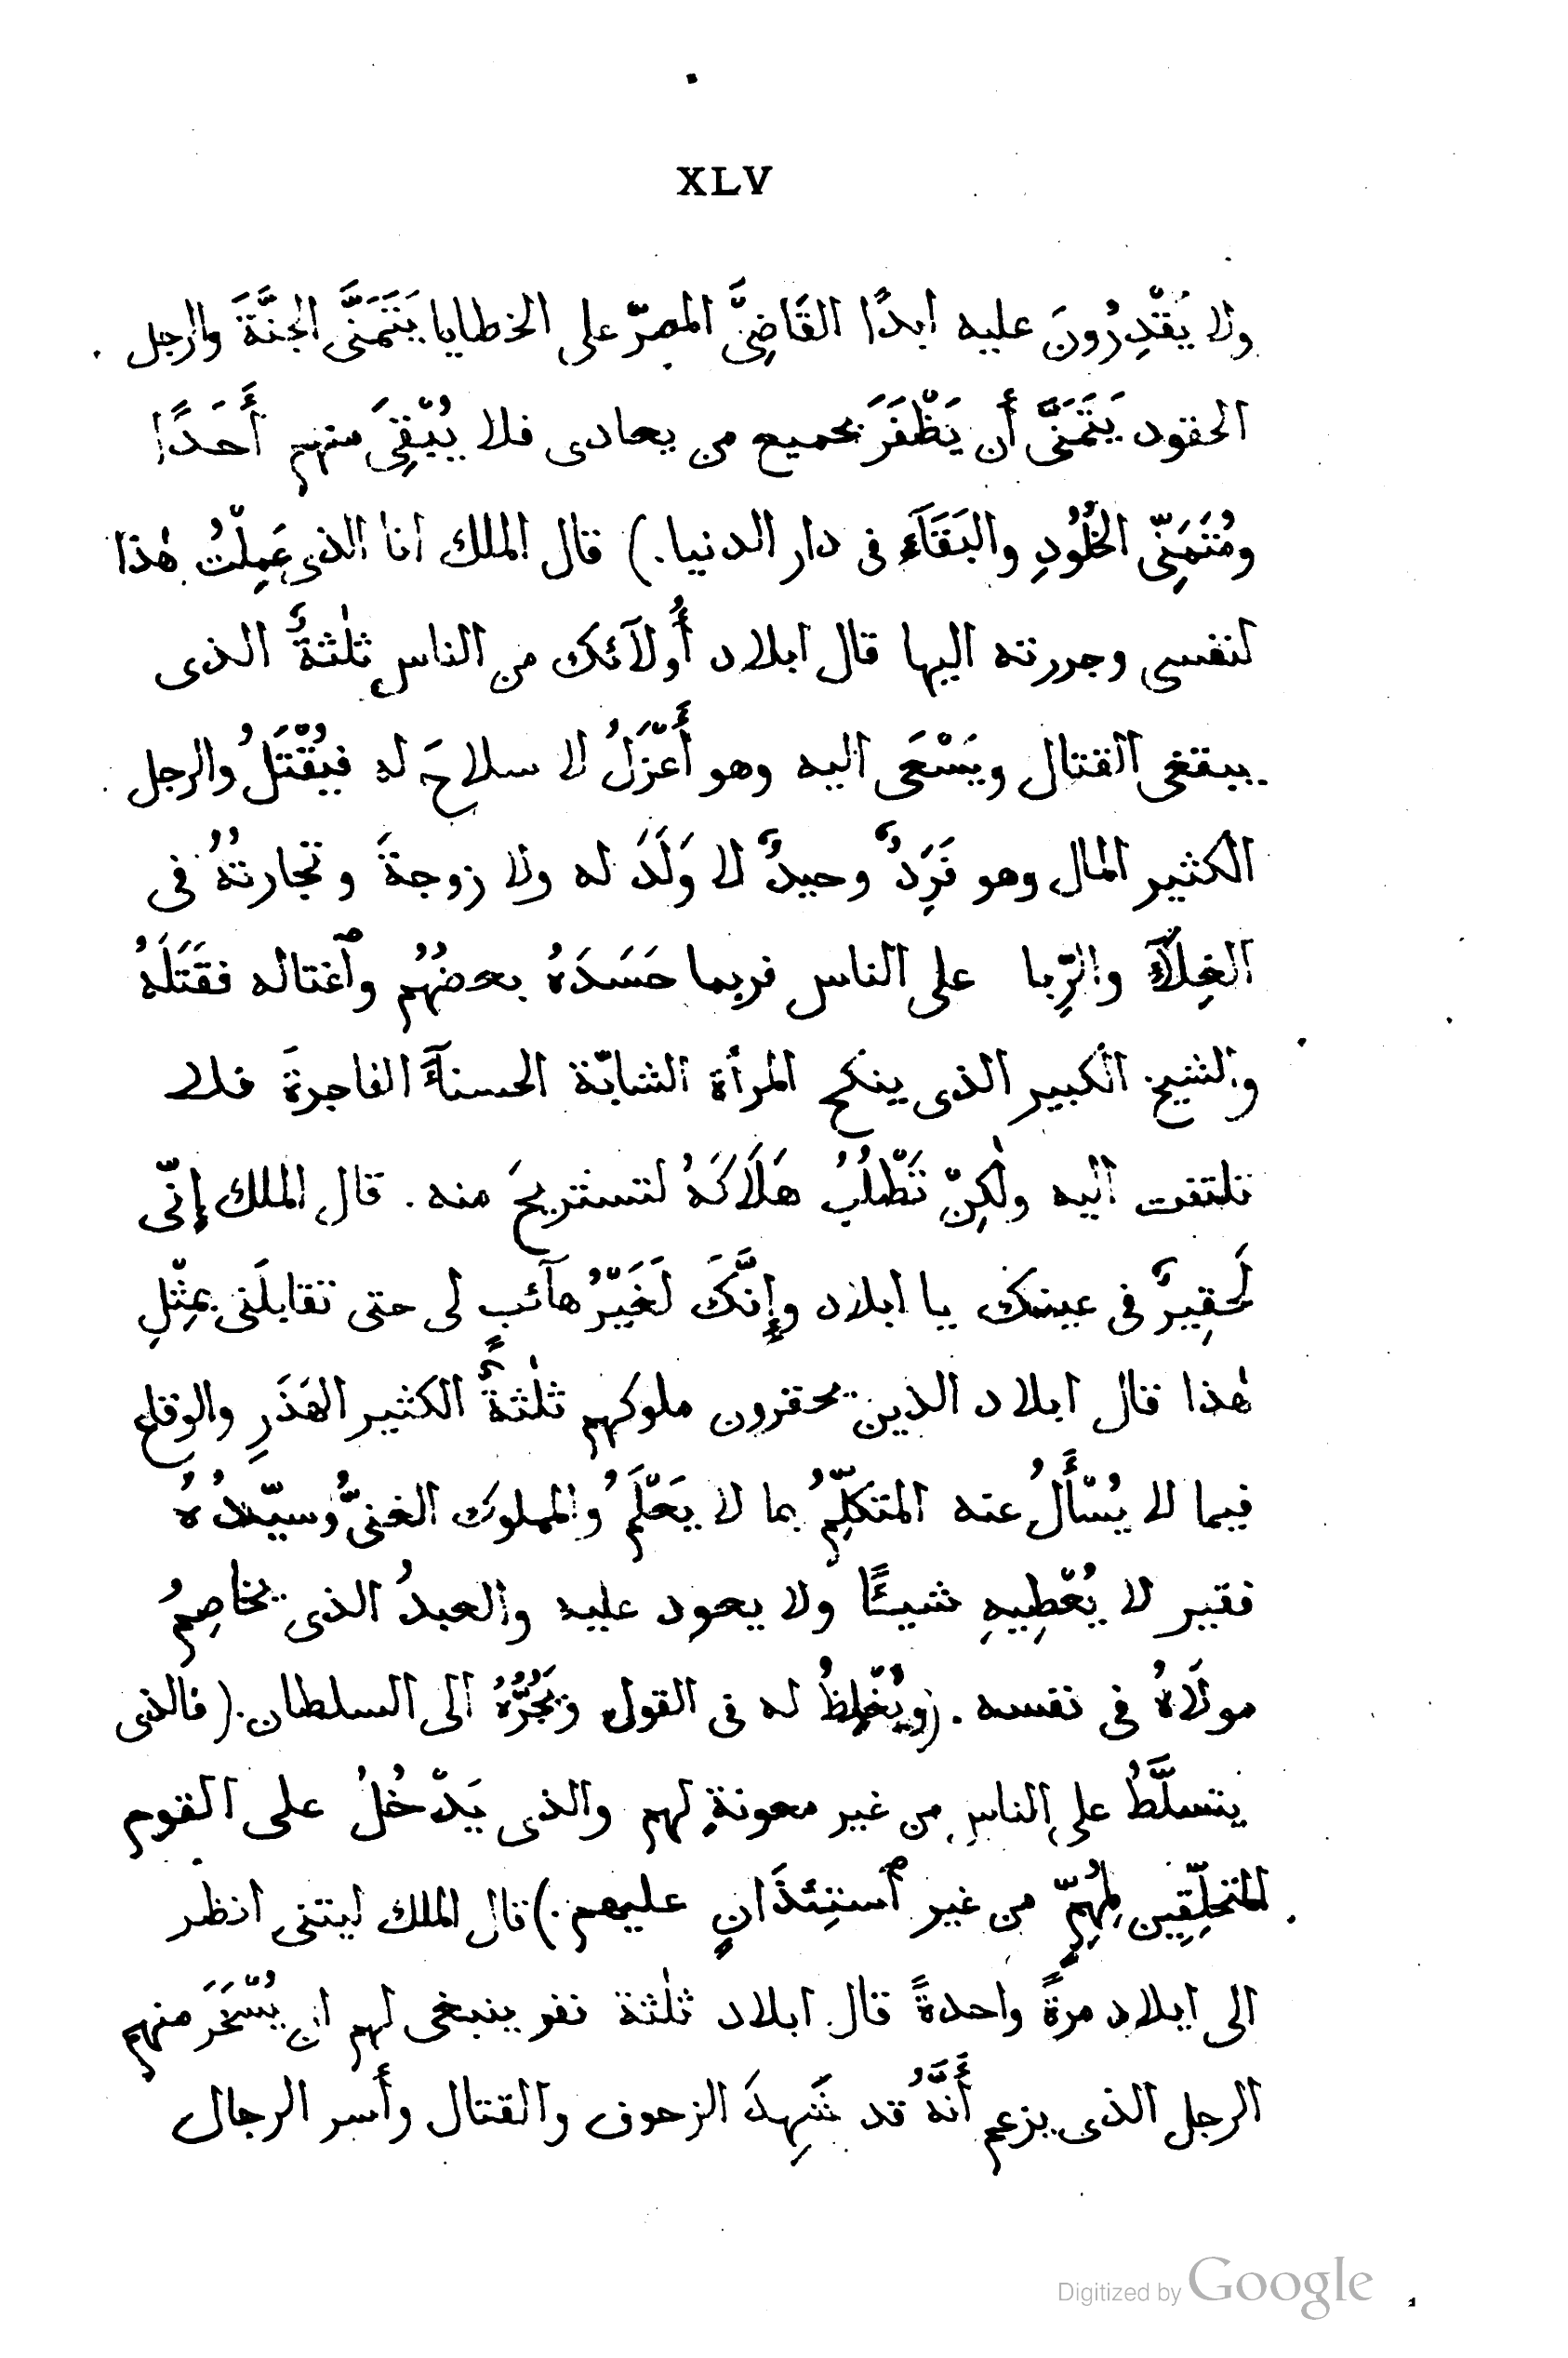 XLV
ولا يَقْدِرُونَ عليه ابدًا القَاضِىَّ المصرّ على الخطايا يَتَمَنَّى الجنَّةَ والرجل
الحقود يَتَمَنَّى أَن يَظْفَرَ بجميع من يعادى فلا يُبْقِىَ منهم أَحَدًا
ومُتَمَنِّى الخُلُودِ والبَقَآءِ فى دار الدنيا.) قال الملك انا الذى عَمِلْتُ هٰذا
لنفسى وجررته اليها قال ابلاد أُولآئك من الناس ثلٰثةٌ الذى
يبتغى القتال ويَسْعَى اليه وهو أَعْزَلُ لا سلاحَ له فيُقْتَلُ والرجل
الكثير المال وهو فَرِدٌ وحيدٌ لا وَلَدَ له ولا زوجةَ وتجارتُهُ فى
الغِلَآءِ والرِّبا على الناس فربما حَسَدَهُ بعضُهُم وٱغتاله فقَتَلَهُ
والشيخ الكبير الذى ينكح المرأة الشابّة الحسنآءَ الفاجرةَ فلا
تلتفت اليه ولٰكِنْ تَطْلُبُ هَلَاكَهُ لتستريحَ منه . قال الملك إِنّى
لَحقِيرٌ فى عينك يا ابلاد وإِنَّكَ لَغَيْرُ هآئبٍ لى حتى تقابلَنى بمِثْلِ
هٰذا قال ابلاد الذين يحقرون ملوكهم ثلٰثةٌ الكثير الهَذَرِ والوقاع
فيما لا يُسْأَلُ عنه المتكلِّمُ بما لا يَعْلَمُ والمملوك الغنىُّ وسيّدُهُ
فقير لا يُعْطِيهِ شيئًا ولا يعود عليه والعبدُ الذى يخاصِمُ
مولَاهُ فى نفسه . (ويُغْلِظُ له فى القول ويَجُرُّهُ الى السلطان.( فالذى
يتسلَّطُ على الناس من غير معونةٍ لهم والذى يَدْخُلُ على القوم
المتحلِّقِين لِمُهِمٍّ من غير ٱستِئذَانٍ عليهم.) قال الملك ليتنى انظر
الى ايلاد مرةً واحدةً قال ابلاد ثلٰثة نفر ينبغى لهم ان يُسْخَرَ منهم
الرجل الذى يزعم أَنَّهُ قد شَهِدَ الزحوف والقتال وأَسر الرجال
Digitized by Google